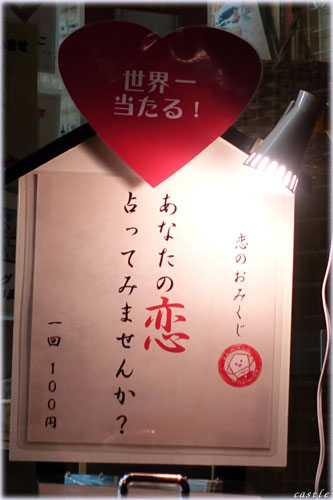 世界一
当たる!
恋のおみくじ
あなたの恋
占ってみませんか?
一回 100円
castle